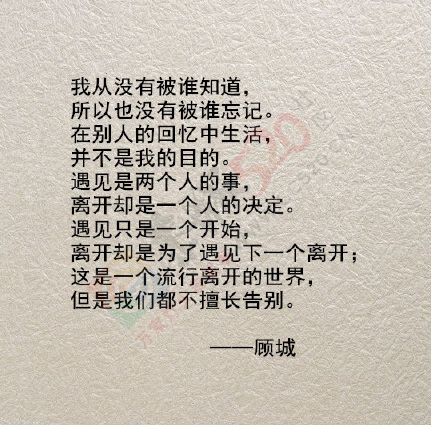 我从没有被谁知道，
所以也没有被谁忘记。
在别人的回忆中生活，
并不是我的目的。
遇见是两个人的事，
离开却是一个人的决定。
遇见只是一个开始，
离开却是为了遇见下一个离开；
这是一个流行离开的世界，
但是我们都不擅长告别。
——顾城